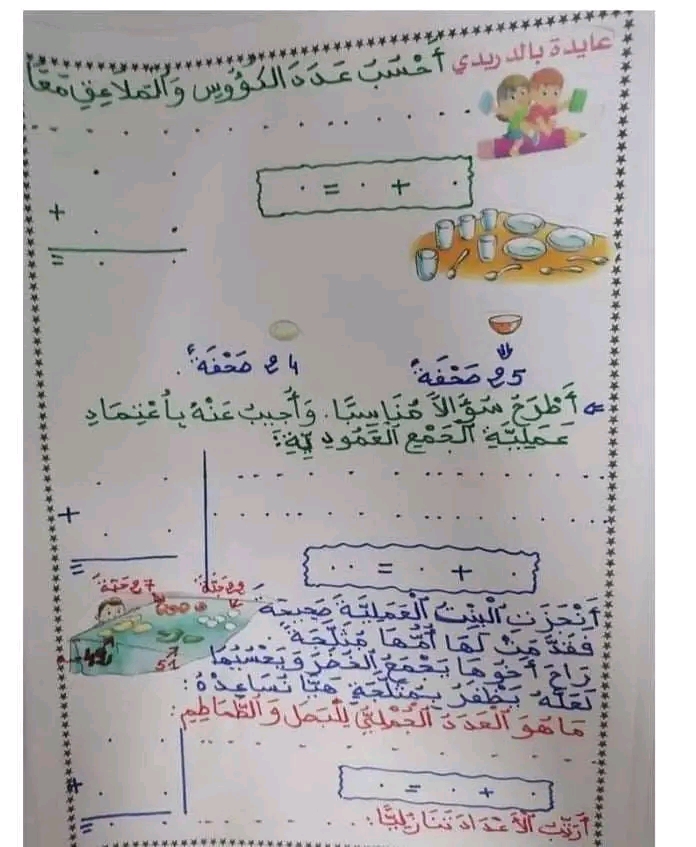 عايدة بالدريدي
أَحْسُبُ عَدَدَ الكُؤُوسِ وَالمَلَاعِقِ مَعًا
. = . + .
+
=
25 صَحْفَةً
24 صَحْفَةً.
⇐ أَطْرَحُ سُؤَالًا مُنَاسِبًا. وَأُجِيبُ عَنْهُ بِاُعْتِمَادِ
عَمَلِيَّةِ اَلْجَمْعِ اَلْعَمُودِيَّةِ:
+
=
. . = . + .
27 حَبَّةً
22 حَبَّةً
42
51
أَنْجَزَتِ اَلْبِنْتُ اَلْعَمَلِيَّةَ صَحِيحَةً
فَقَدَّمَتْ لَهَا أُمُّهَا مُثَلَّجَةً.
رَاحَ أَخُوهَا يَجْمَعُ الخُضَرَ وَيَحْسُبُهَا
لَعَلَّهُ يَظْفَرُ بِمُثَلَّجَةٍ هَيَّا نُسَاعِدُهُ:
مَا هُوَ اَلْعَدَدُ اَلْجُمْلِيُّ لِلْبَصَلِ وَ الطَّمَاطِمِ:
. = . + .
+
=
أُرَتِّبُ اَلْأَعْدَادَ تَنَازُلِيًّا: